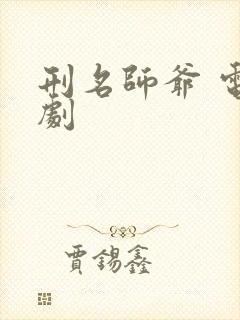 刑名師爺 電
劇
賈錫鑫